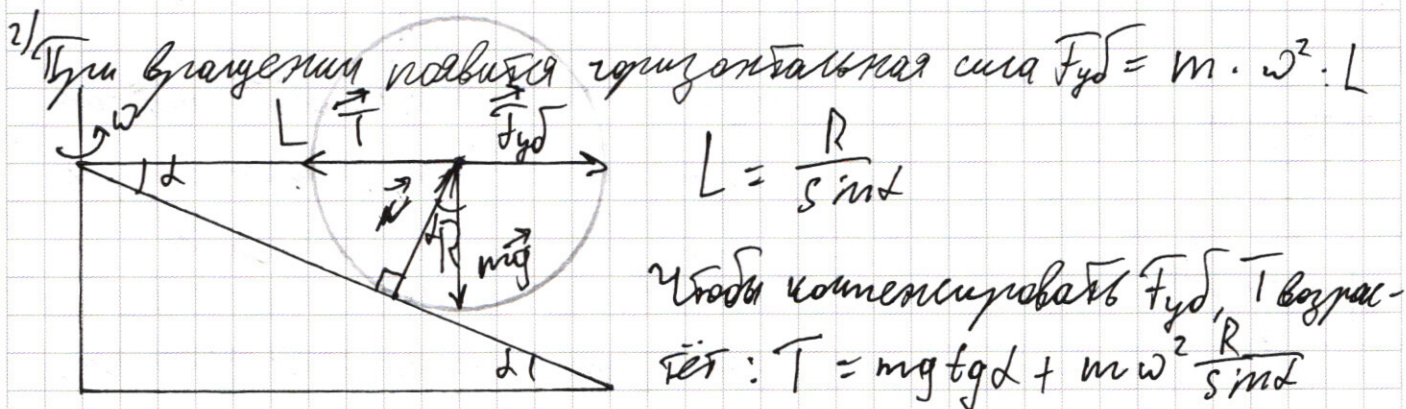 2) При вращении появится горизонтальная сила Fуб = m · ω² · L
ω L T⃗ F⃗уб
α
L = R / sin α
N⃗ α R mg⃗
Чтобы компенсировать Fуб, T возрас-
тёт : T = mg tg α + m ω² R / sin α
α